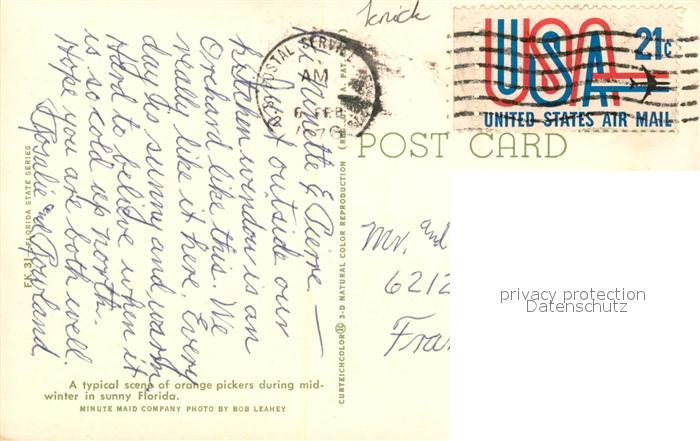 Kerrick
U.S. POSTAL SERVICE
AM
6 FEB
USA
21c
UNITED STATES AIR MAIL
POST CARD
Hi Mariette & Pierre —
Just outside our
kitchen window is an
Orchard like this. We
really like it here. Every
day is sunny and warm,
Hard to believe when it
is so cold up north.
Hope you are both well.
Rosalie and Rowland
FK.31—FLORIDA STATE SERIES
A typical scene of orange pickers during mid-
winter in sunny Florida.
MINUTE MAID COMPANY PHOTO BY BOB LEAHEY
CURTEICHCOLOR® 3-D NATURAL COLOR REPRODUCTION
Mr. and
6212
Fran
privacy protection
Datenschutz